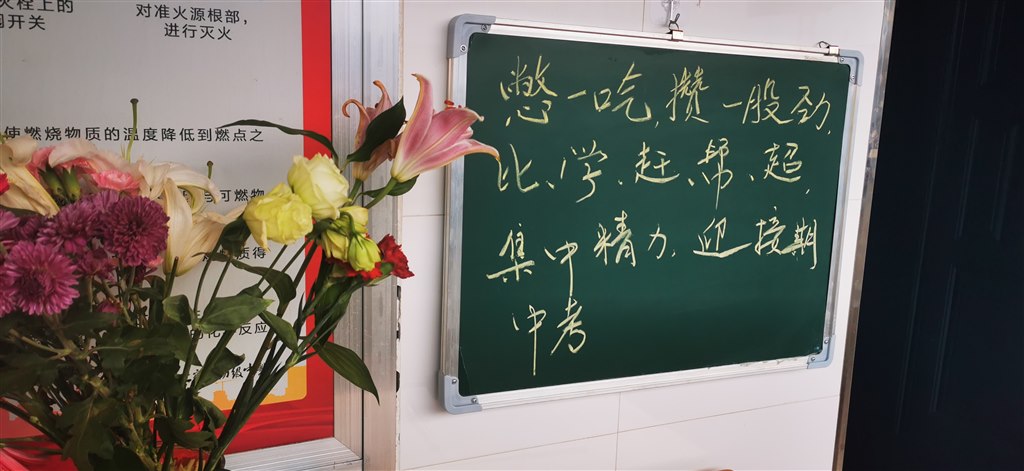 栓上的
开关
对准火源根部，
进行灭火
使燃烧物质的温度降低到燃点之
可燃物
质得
反应
憋一口气，攒一股劲，
比、学、赶、帮、超，
集中精力，迎接期
中考